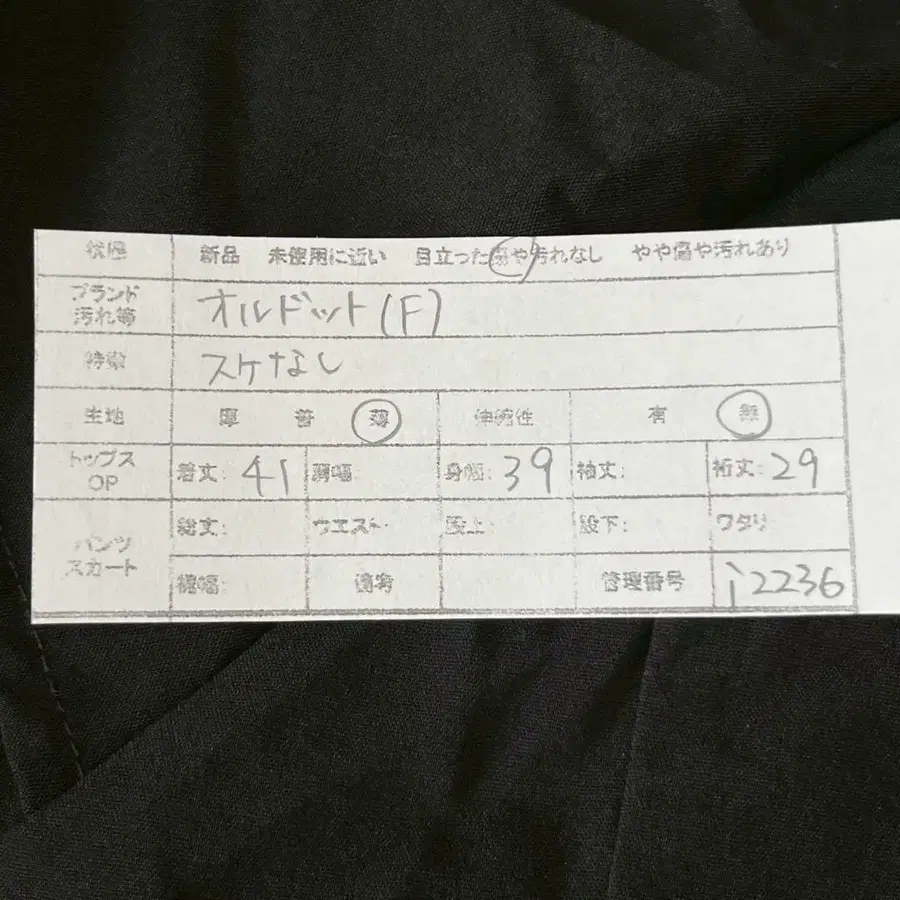 状態 新品 未使用に近い 目立った傷や汚れなし やや傷や汚れあり
ブランド
汚れ等 オルドット(F)
特徴 スケなし
生地 厚 普 薄 伸縮性 有 無
トップス
OP 着丈: 41 肩幅: 身幅: 39 袖丈: 裄丈: 29
パンツ
スカート 総丈: ウエスト: 股上: 股下: ワタリ:
裾幅: 備考 管理番号 i2236